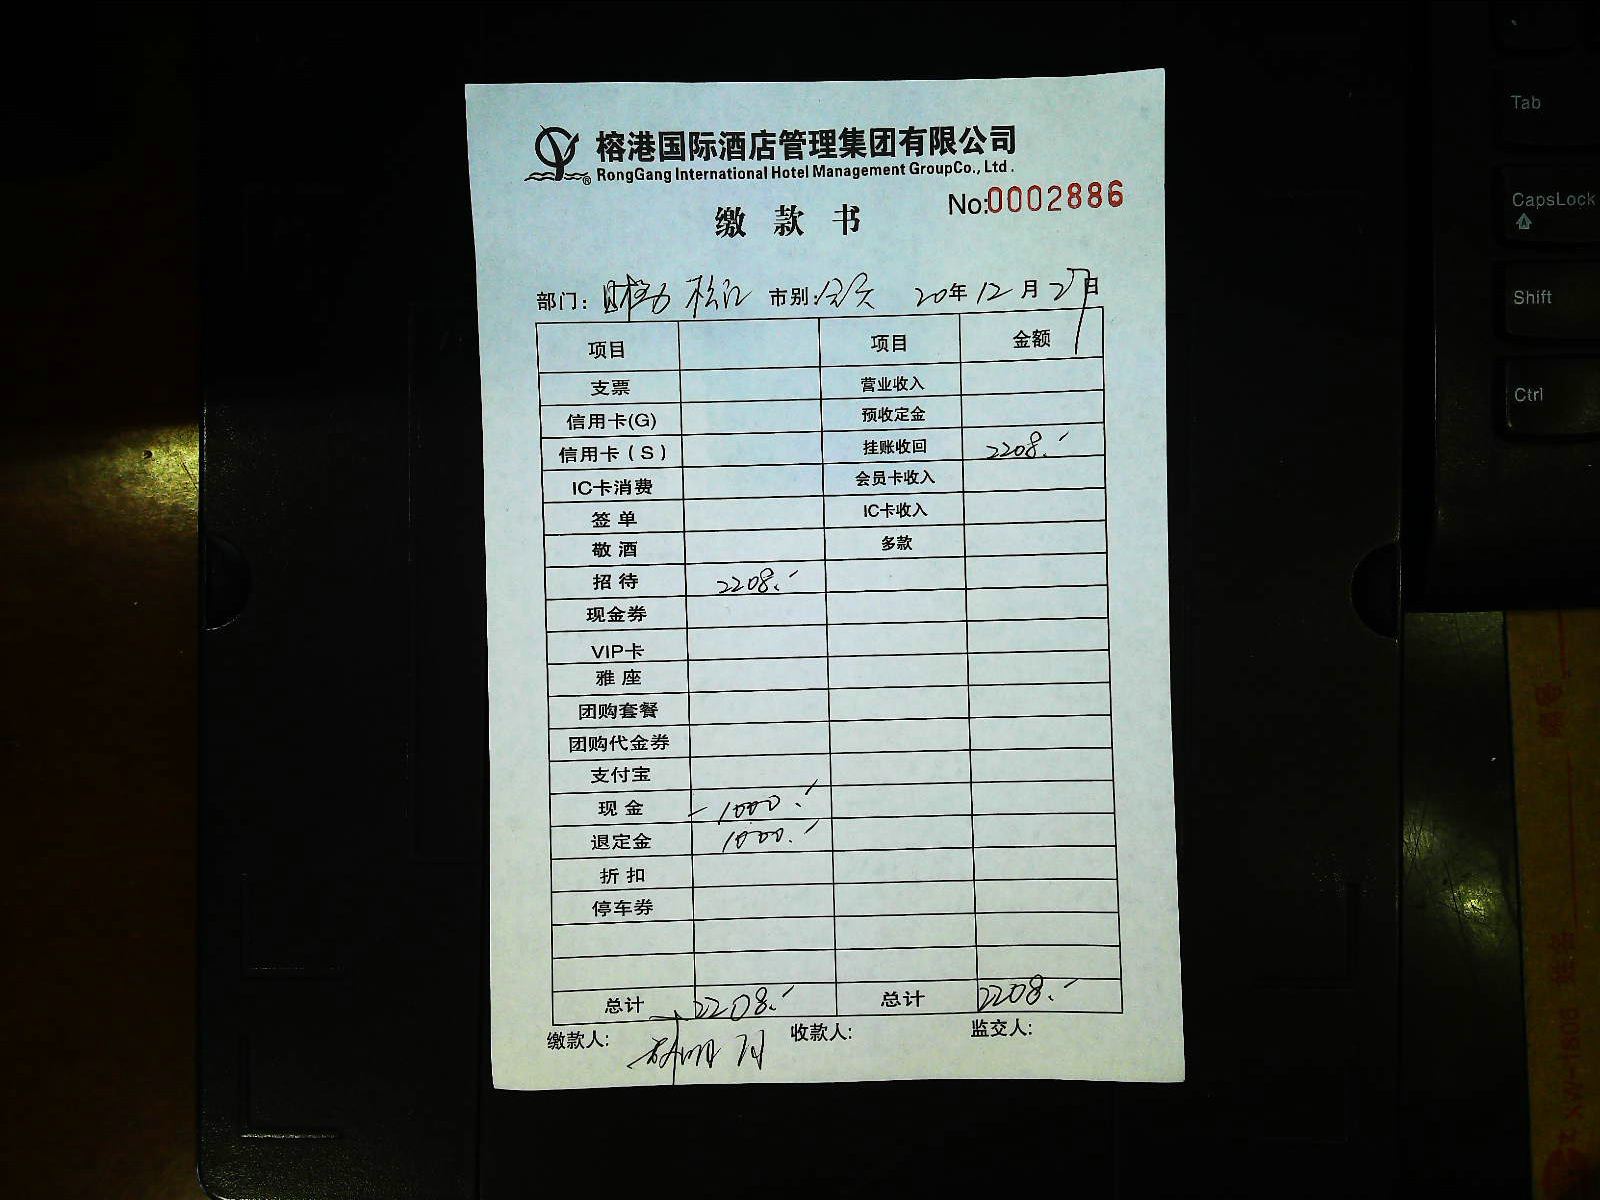 榕港国际酒店管理集团有限公司
RongGang International Hotel Management GroupCo., Ltd.
No:0002886
缴款书
部门: 财务 松江 市别: 全天 20年12月27日
项目 项目 金额
支票 营业收入
信用卡(G) 预收定金
信用卡(S) 挂账收回 2208.-
IC卡消费 会员卡收入
签单 IC卡收入
敬酒 多款
招待 2208.-
现金券
VIP卡
雅座
团购套餐
团购代金券
支付宝
现金 -1000.-
退定金 1000.-
折扣
停车券
总计 2208.- 总计 2208.-
缴款人: 收款人: 监交人:
Tab
CapsLock
Shift
Ctrl